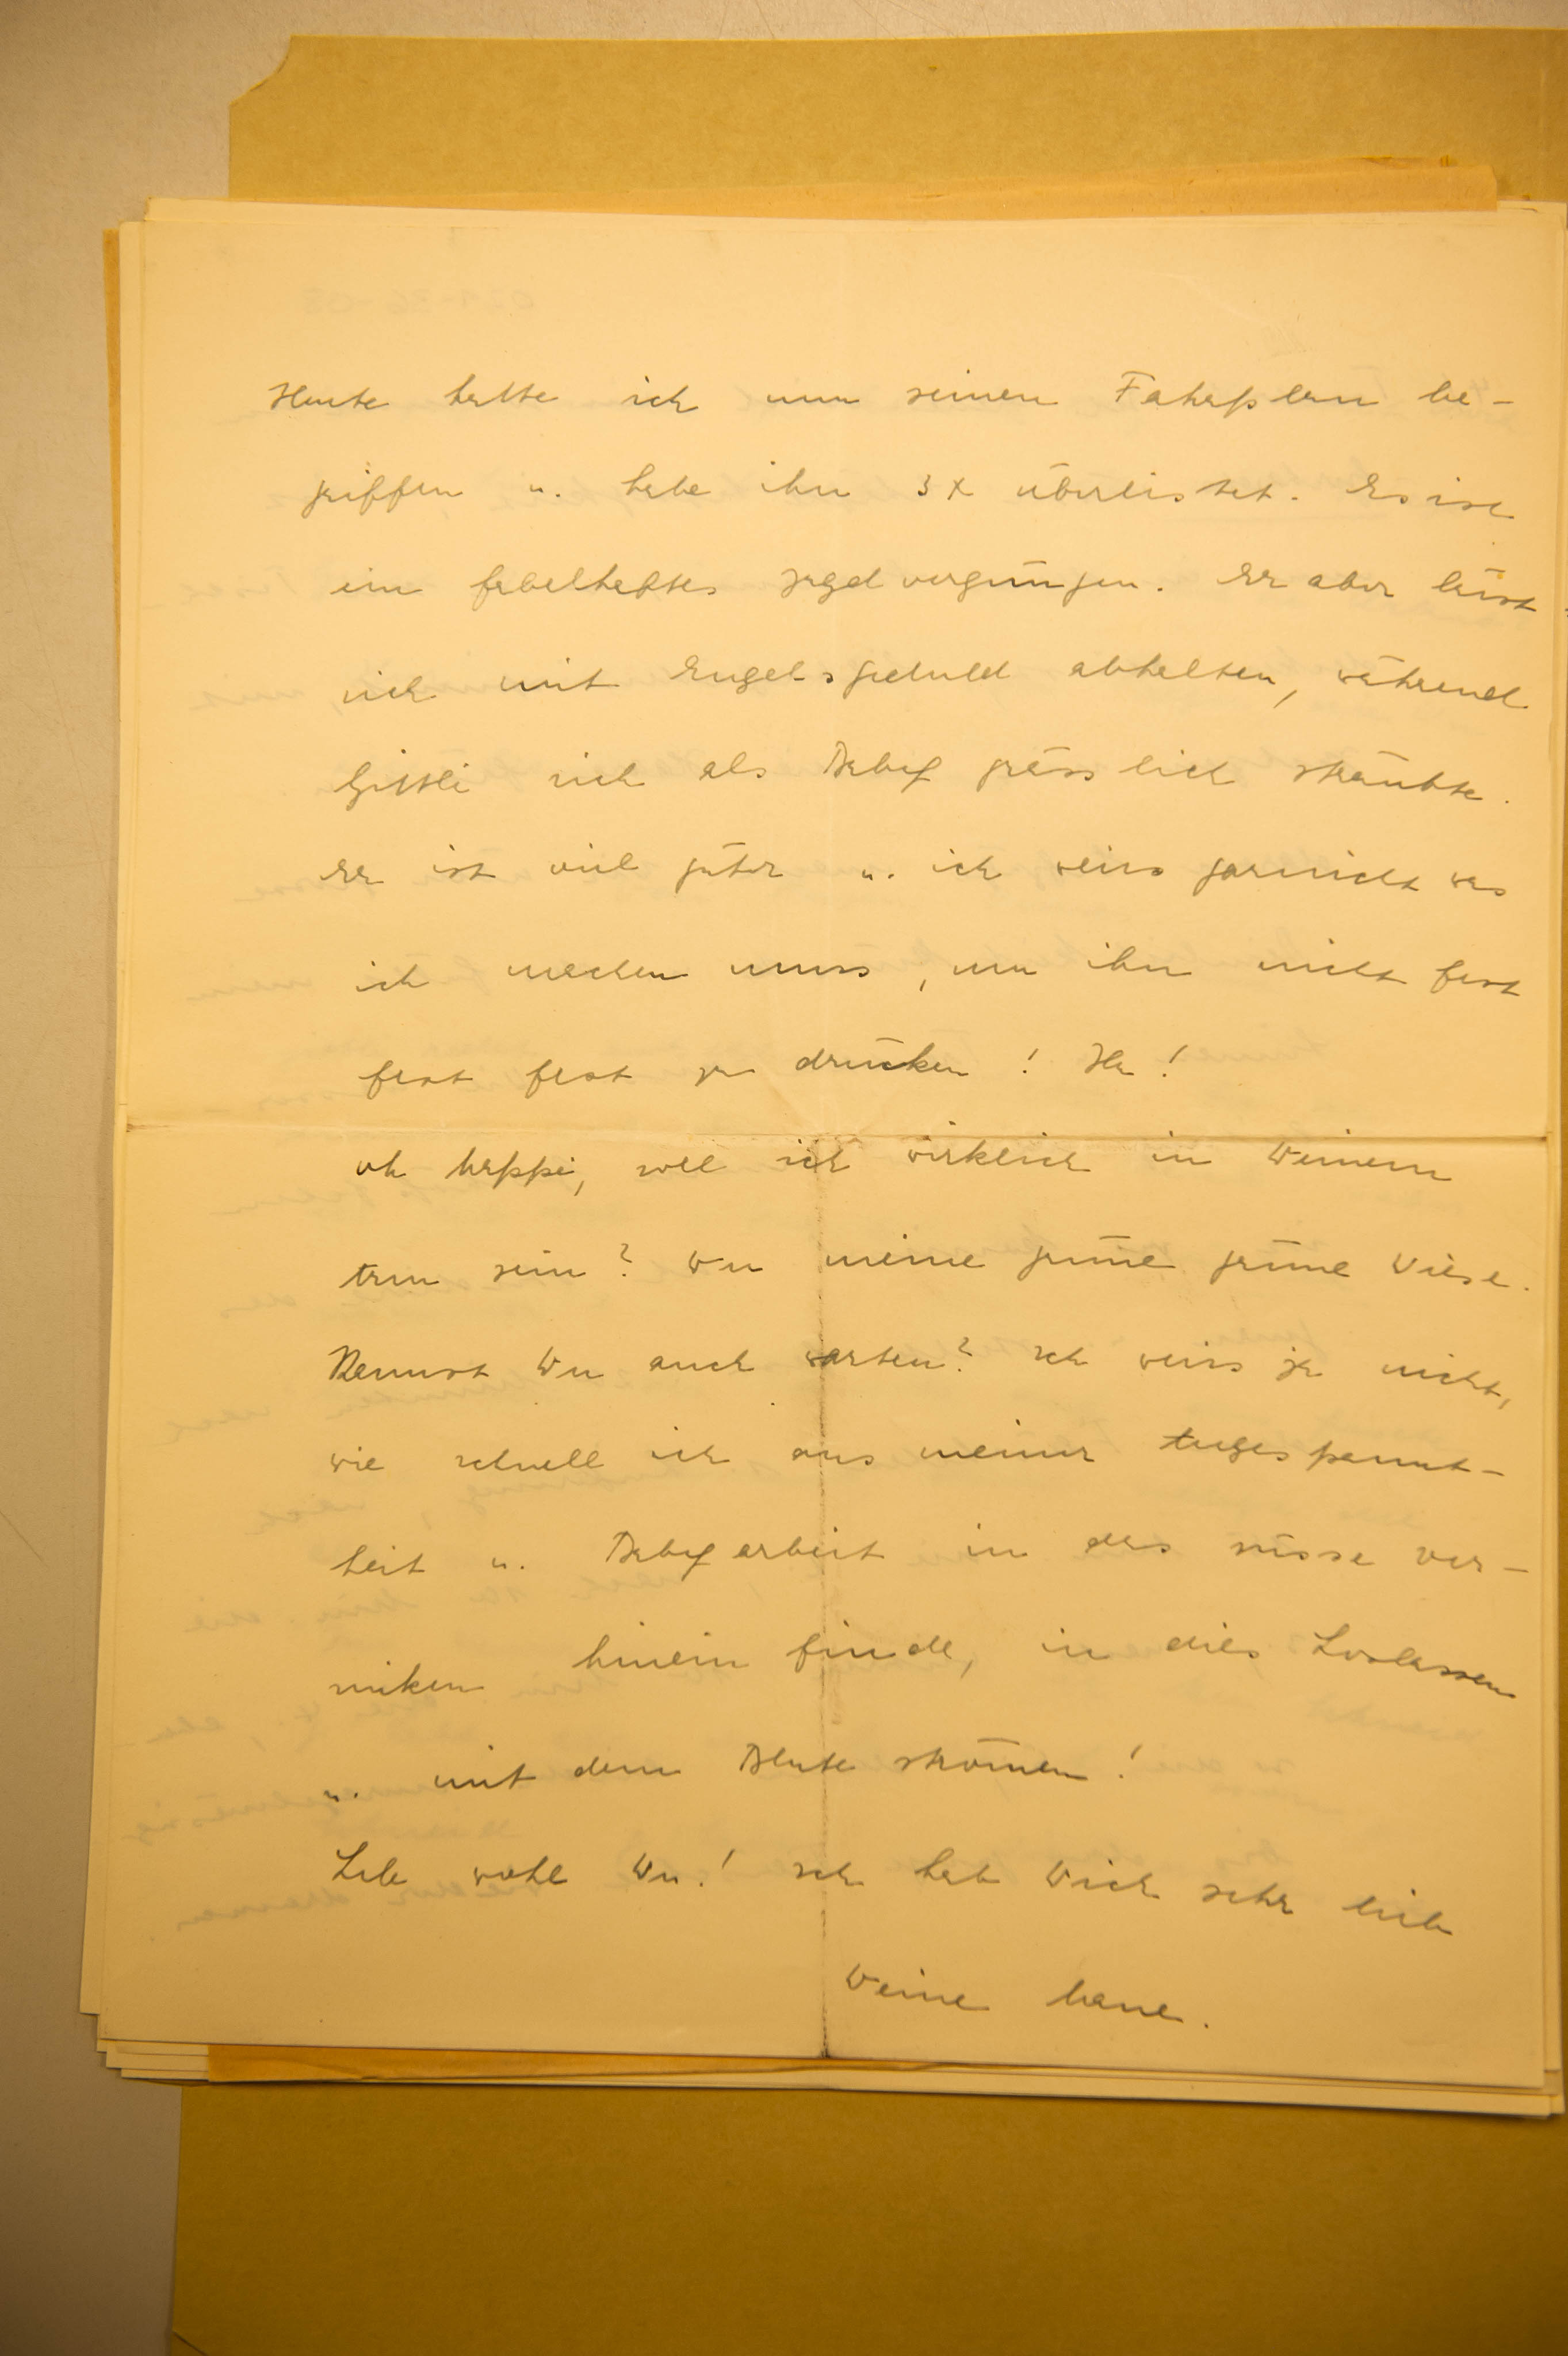 Heute hatte ich nun seinen Fahrplan be-
griffen u. habe ihn 3x überlistet. Es ist
ein fabelhaftes Jagdvergnügen. Er aber lässt
sich mit Engelsgeduld abhalten, während
Gittli sich als Baby grässlich sträubte.
Er ist viel guter u. ich weiss garnicht was
ich machen muss, um ihn nicht fest
fest fest zu drücken! Ha!
oh happi, soll ich wirklich in Deinem
trm sein? Du meine grüne grüne Wiese.
Kannst Du auch warten? Ich weiss ja nicht,
wie schnell ich aus meiner Angespannt-
heit u. Babyarbeit in das süsse ver-
sinken hinein finde, in dies Loslassen
u. mit dem Blute strömen!
Lebe wohl Du! Ich hab Dich sehr lieb
Deine hane.